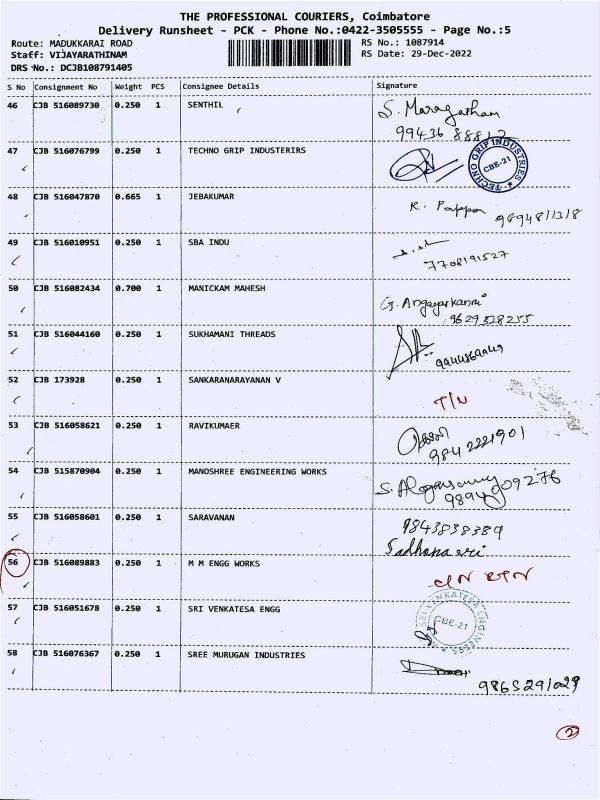 THE PROFESSIONAL COURIERS, Coimbatore
Delivery Runsheet - PCK - Phone No.:0422-3505555 - Page No.:5
Route: MADUKKARAI ROAD RS No.: 1087914
Staff: VIJAYARATHINAM RS Date: 29-Dec-2022
DRS No.: DCJB108791405
S No Consignment No Weight PCS Consignee Details Signature
46 CJB 516089730 0.250 1 SENTHIL S. Maragatham
99436 88812
47 CJB 516076799 0.250 1 TECHNO GRIP INDUSTERIRS TECHNO GRIP INDUSTRIES CBE-21
48 CJB 516047870 0.665 1 JEBAKUMAR R. Pappa
9894811318
49 CJB 516010951 0.250 1 SBA INDU
7708191527
50 CJB 516082434 0.700 1 MANICKAM MAHESH G. Angayarkanni
9629528255
51 CJB 516044160 0.250 1 SUKHAMANI THREADS
52 CJB 173928 0.250 1 SANKARANARAYANAN V
T/N
53 CJB 516058621 0.250 1 RAVIKUMAER
9842221901
54 CJB 515870904 0.250 1 MANOSHREE ENGINEERING WORKS
55 CJB 516058601 0.250 1 SARAVANAN 9843838389
Sadhana sri
56 CJB 516089883 0.250 1 M M ENGG WORKS
57 CJB 516051678 0.250 1 SRI VENKATESA ENGG SRI VENKATESA ENGINEERS CBE-21
58 CJB 516076367 0.250 1 SREE MURUGAN INDUSTRIES
9865291029
2